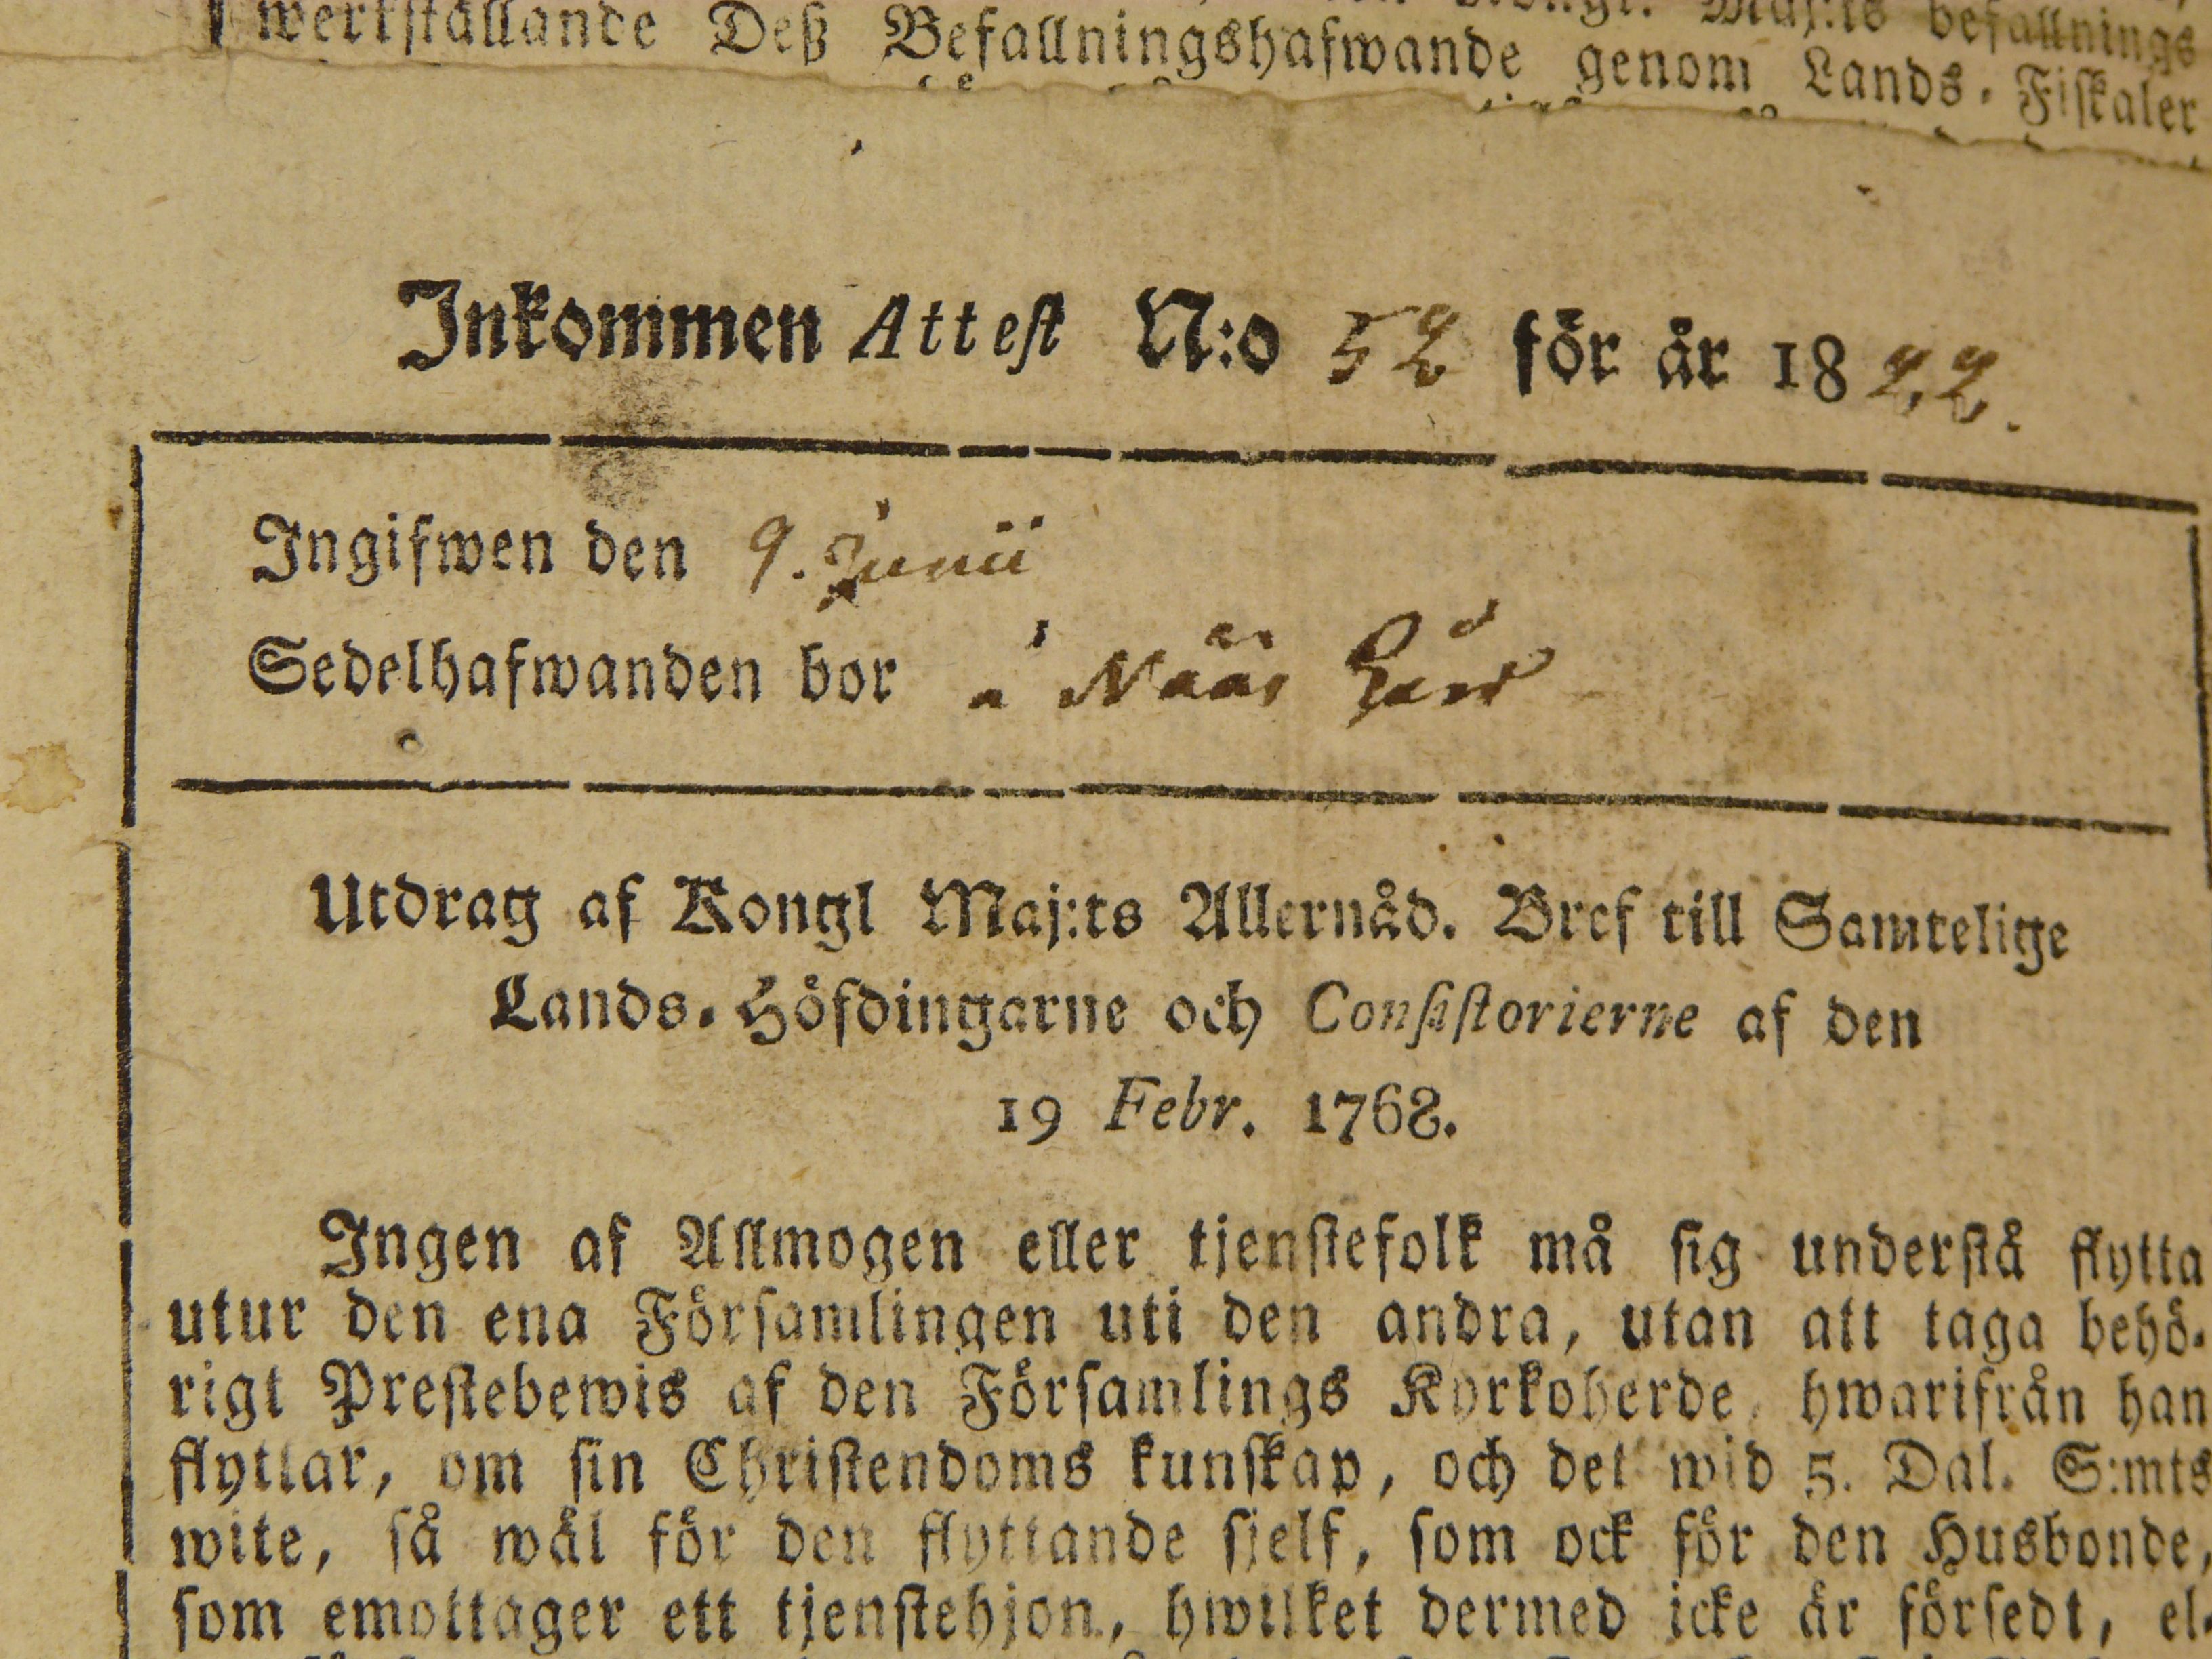 werkställande Deß Befallningshafwande genom Lands-Fiskaler
Inkommen Attest N:o 52 för år 1822.
Ingifwen den 9. Junii
Sedelhafwanden bor å Nääs
Utdrag af Kongl Maj:ts Allernåd. Bref till Samtelige
Lands-Höfdingarne och Consistorierne af den
19 Febr. 1768.
Ingen af Allmogen eller tjenstefolk må sig understå flytta
utur den ena Församlingen uti den andra, utan att taga behö-
rigt Prestebewis af den Församlings Kyrkoherde, hwarifrån han
flyttar, om sin Christendoms kunskap, och det wid 5. Dal. S:mts
wite, så wäl för den flyttande sjelf, som ock för den Husbonde,
som emottager ett tjenstehjon, hwilket dermed icke är försedt, el-